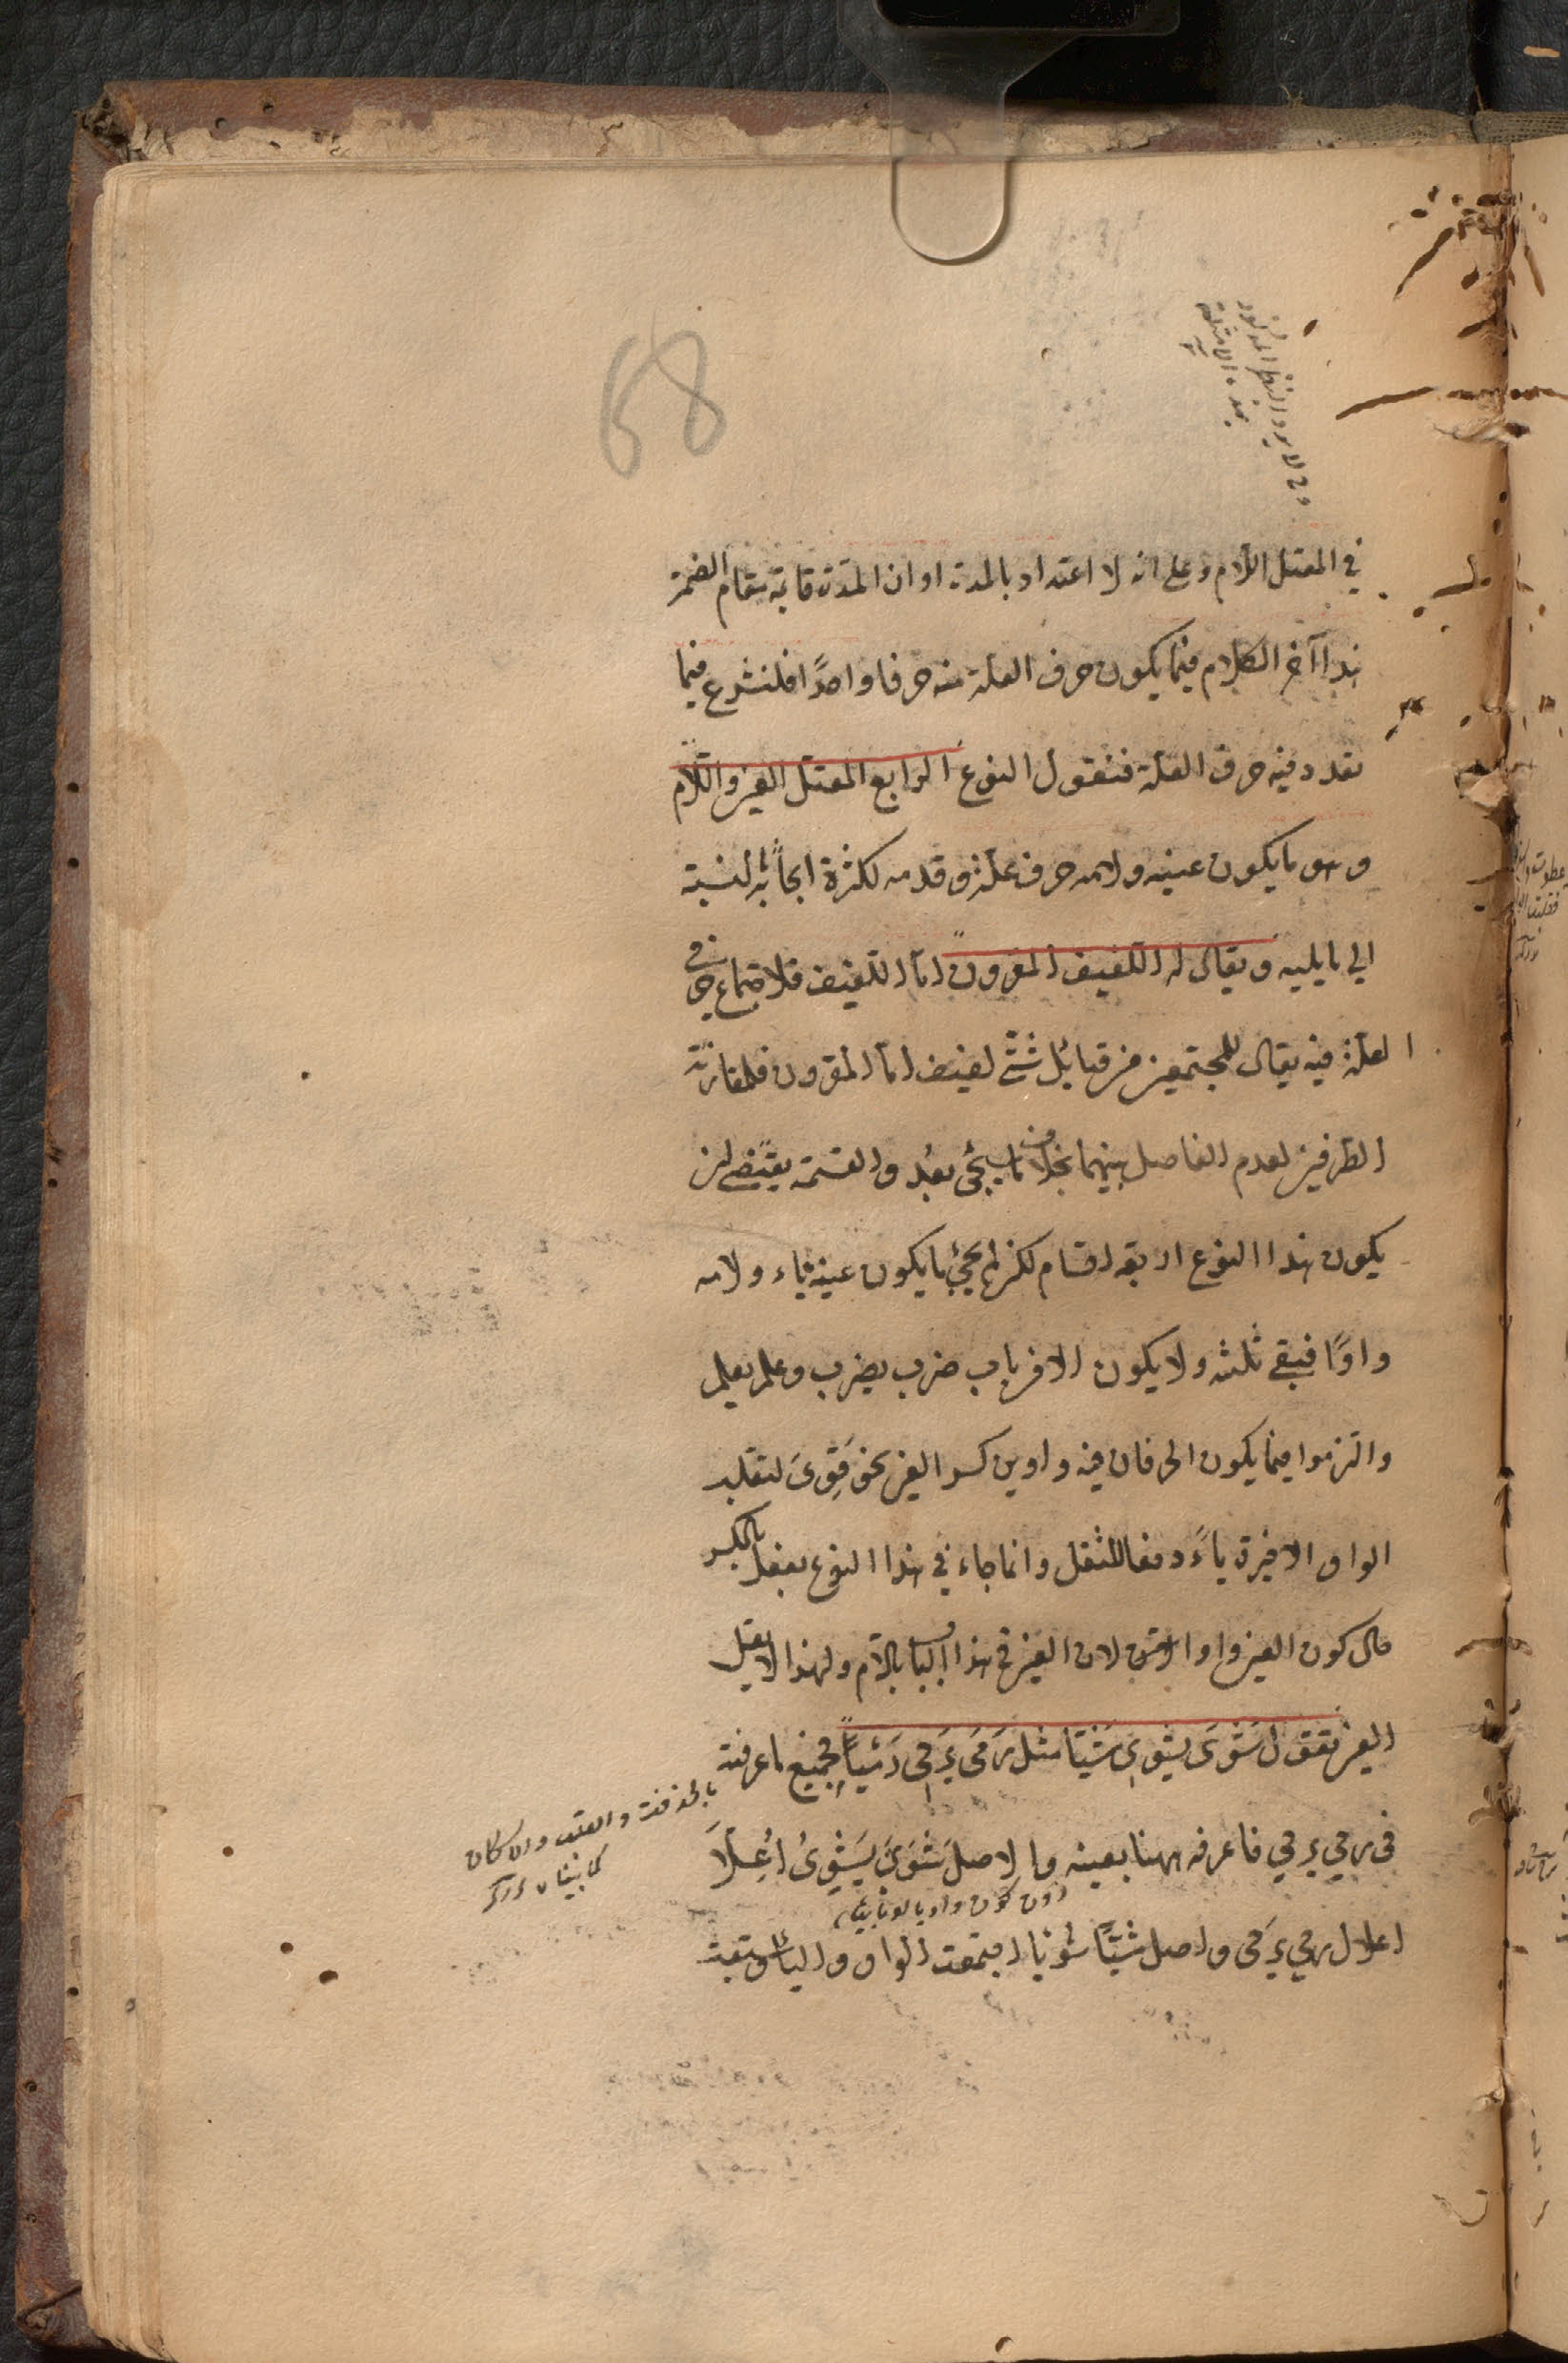 68
في المعتل اللام وعلى انه لا اعتداد بالمدة او ان المدّة قائمة مقام الضمة
هذا آخر الكلام فيما يكون حرف العلة منه حرفا واحدًا فلنشرع فيما
تعدد فيه حرف العلة فنقول النوع الرابع المعتل العين واللّام
وهو ما يكون عينه ولامه حرف علة وقدمه لكثرة ابحاثه بالنسبة
الى ما يليه ويقال له اللفيف المقرون امّا اللّفيف فلاجتماع حرفي
العلّة فيه يقال للمجتمعين من قبائل شتّى لفيف امّا المقرون فلمقارنة
الطرفين لعدم الفاصل بينهما بخلاف ما يجئ بعد والقسمة يقتضى ان
يكون هذا النوع اربعة اقسام لكن لم يجئ ما يكون عينه ياء ولامه
واوًا فبقى ثلثه ولا يكون الا من باب ضرب يضرب وعلم يعلم
والتزموا فيما يكون الحرفان فيه واوين كسر العين نحو قَوِىَ لتقلب
الواو الاخيرة ياءً دفعا للثقل وانما جاء في هذا النوع يفعل بالكسر
حال كون العين واوا لان العين في هذا الباب كاللام ولهذا لا يعل
العين تقول شَوَى يَشْوِى شَيّا مثل رَمَى يَرمِى رَمْيًا فجميع ما عرفته
فى رمى يرمى فاعرفه ههنا بعينه والاصل شَوَىَ يَشْوِىُ اُعِلّا
اعلال رمى يرمى واصل شَيًّا شَوْيًا اجتمعت الواو والياء وسبقت
ولا يرد النظر المذكور
بهذه الامثلة